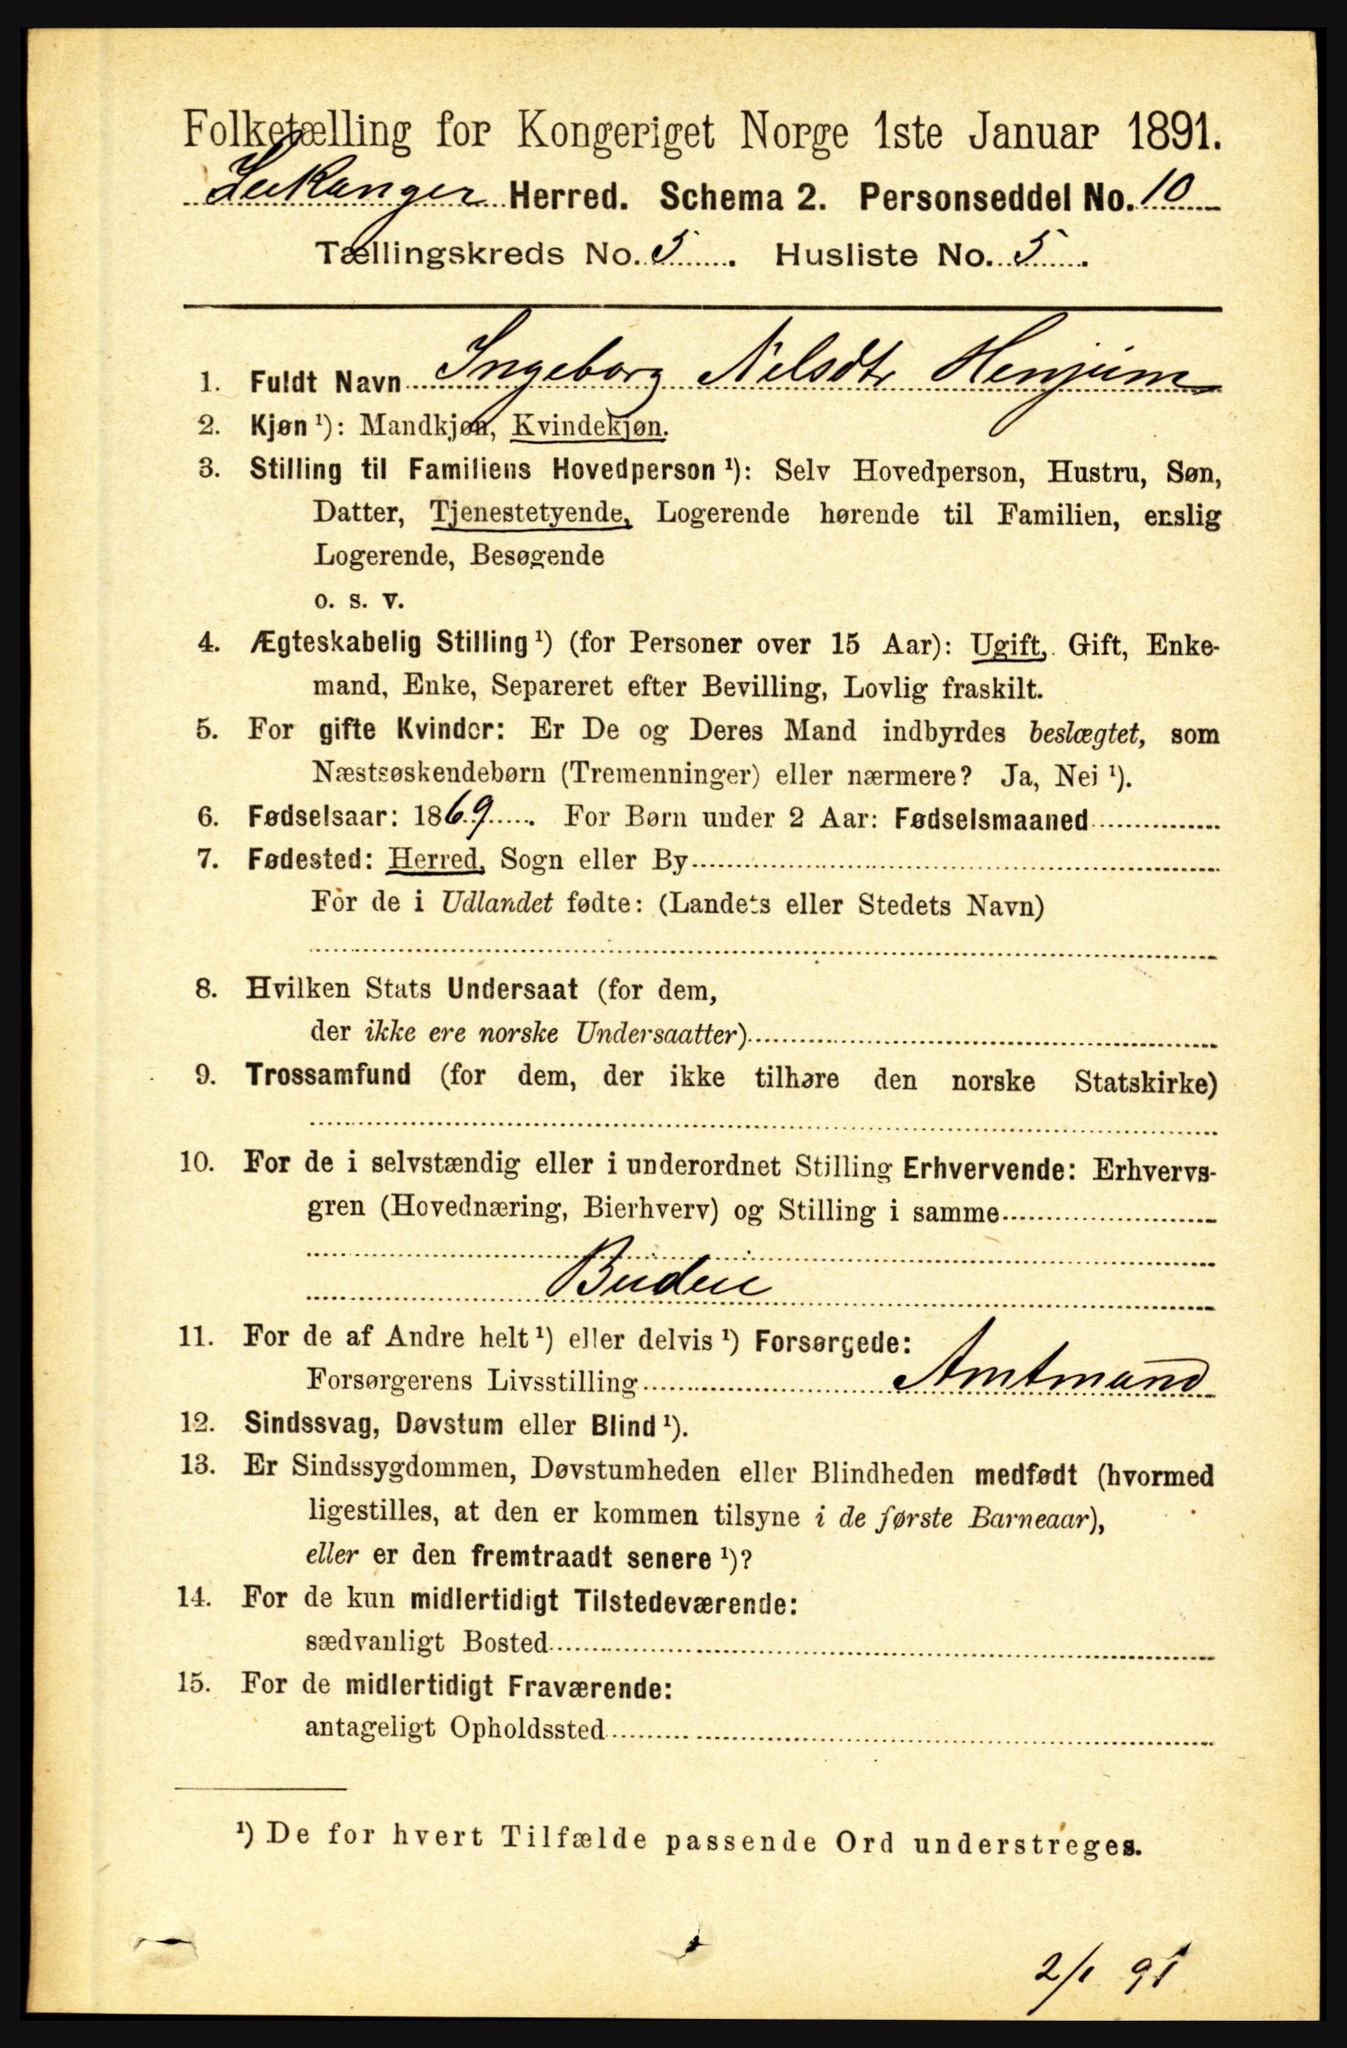 Folketælling for Kongeriget Norge 1ste Januar 1891.
Leikanger Herred. Schema 2. Personseddel No. 10
Tællingskreds No. 5. Husliste No. 5.
1. Fuldt Navn Ingeborg Nilsdtr Henjum
2. Kjøn ¹): Mandkjøn, Kvindekjøn.
3. Stilling til Familiens Hovedperson ¹): Selv Hovedperson, Hustru, Søn,
Datter, Tjenestetyende, Logerende hørende til Familien, enslig
Logerende, Besøgende
o. s. v.
4. Ægteskabelig Stilling ¹) (for Personer over 15 Aar): Ugift, Gift, Enke-
mand, Enke, Separeret efter Bevilling, Lovlig fraskilt.
5. For gifte Kvinder: Er De og Deres Mand indbyrdes beslægtet, som
Næstsøskendebørn (Tremenninger) eller nærmere? Ja, Nei ¹).
6. Fødselsaar: 1869. For Børn under 2 Aar: Fødselsmaaned
7. Fødested: Herred, Sogn eller By
For de i Udlandet fødte: (Landets eller Stedets Navn)
8. Hvilken Stats Undersaat (for dem,
der ikke ere norske Undersaatter)
9. Trossamfund (for dem, der ikke tilhøre den norske Statskirke)
10. For de i selvstændig eller i underordnet Stilling Erhvervende: Erhvervs-
gren (Hovednæring, Bierhverv) og Stilling i samme
Budeie
11. For de af Andre helt ¹) eller delvis ¹) Forsørgede:
Forsørgerens Livsstilling Amtmand
12. Sindssvag, Døvstum eller Blind ¹).
13. Er Sindssygdommen, Døvstumheden eller Blindheden medfødt (hvormed
ligestilles, at den er kommen tilsyne i de første Barneaar),
eller er den fremtraadt senere ¹)?
14. For de kun midlertidigt Tilstedeværende:
sædvanligt Bosted
15. For de midlertidigt Fraværende:
antageligt Opholdssted
¹) De for hvert Tilfælde passende Ord understreges.
2/1 91